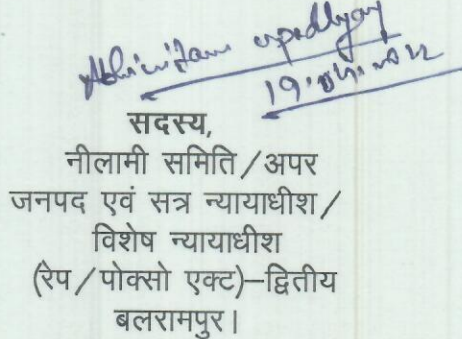 Abhinitam upadhyay
सदस्य,
नीलामी समिति/अपर
जनपद एवं सत्र न्यायाधीश/
विशेष न्यायाधीश
(रेप/पोक्सो एक्ट)–द्वितीय
बलरामपुर।